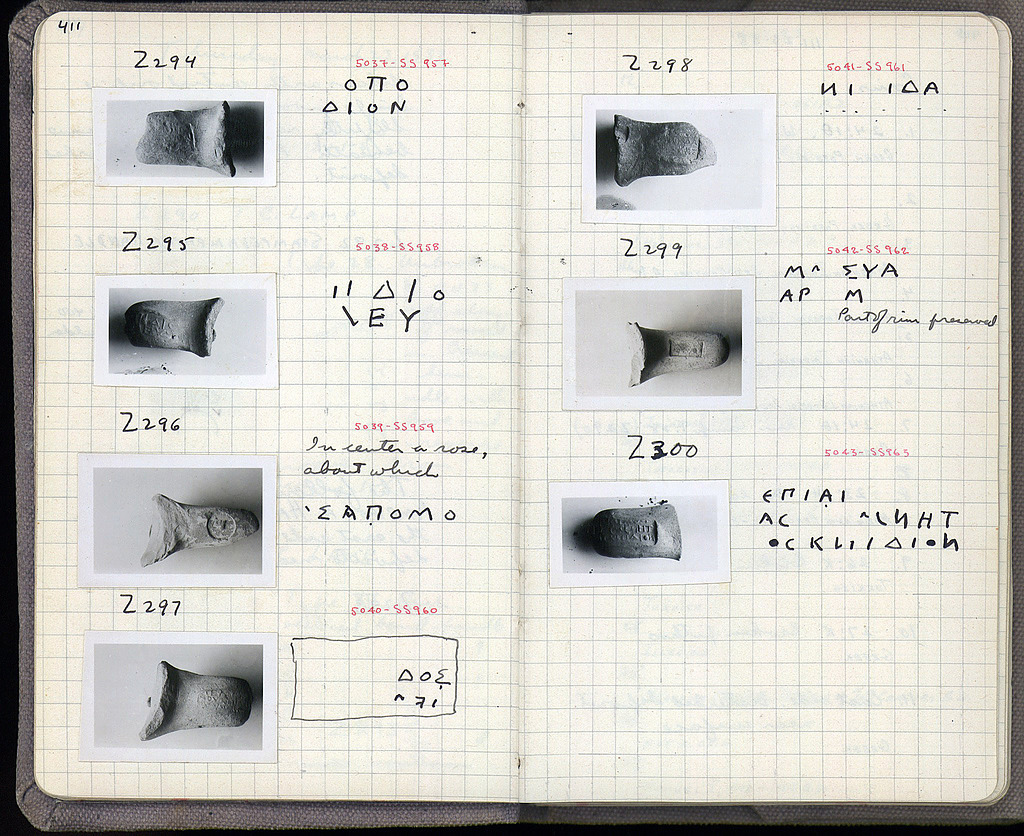 411
Z294
5037-SS957
ΟΠΟ
ΔΙΟΝ
Z295
5038-SS958
ΙΙ ΔΙΟ
\ΕΥ
Z296
5039-SS959
In center a rose,
about which
ΣΑΠΟΜΟ
Z297
5040-SS960
ΔΟΣ
Z298
5041-SS961
ИΙ ΙΔΑ
Z299
5042-SS962
ΣΥΑ
ΑΡ Μ
Part of rim preserved
Z300
5043-SS963
ЄΠΙΑΙ
ΑC ИΗΤ
ΔΙΟИ